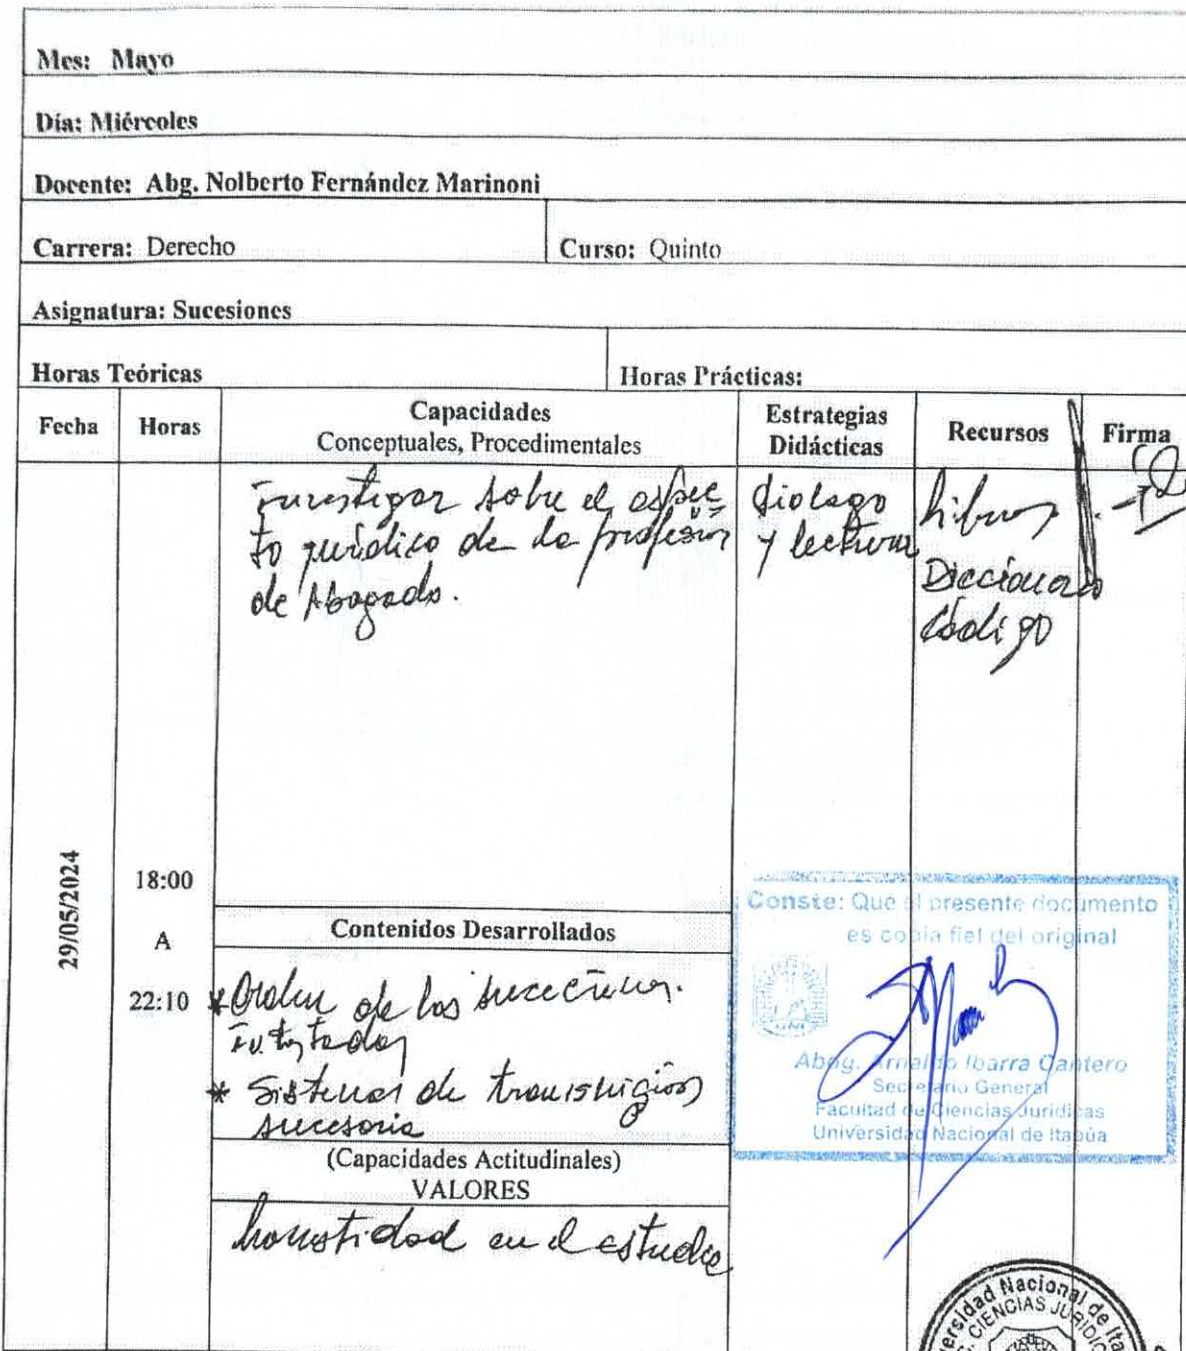 Mes: Mayo
Día: Miércoles
Docente: Abg. Nolberto Fernández Marinoni
Carrera: Derecho
Curso: Quinto
Asignatura: Sucesiones
Horas Teóricas
Horas Prácticas:
Fecha
Horas
Capacidades
Conceptuales, Procedimentales
Estrategias
Didácticas
Recursos
Firma
investigar sobre el aspec
to jurídico de la profesión
de Abogado.
diálogo
y lectura
Libros
Diccionario
Código
29/05/2024
18:00
A
22:10
Contenidos Desarrollados
* Orden de las
* Sistemas de
sucesoria
(Capacidades Actitudinales)
VALORES
honestidad en el estudio
Conste: Que el presente documento
es copia fiel del original
UNI
Abog. Arnaldo Ibarra Cantero
Secretario General
Facultad de Ciencias Jurídicas
Universidad Nacional de Itapúa
Nacional de
CIENCIAS